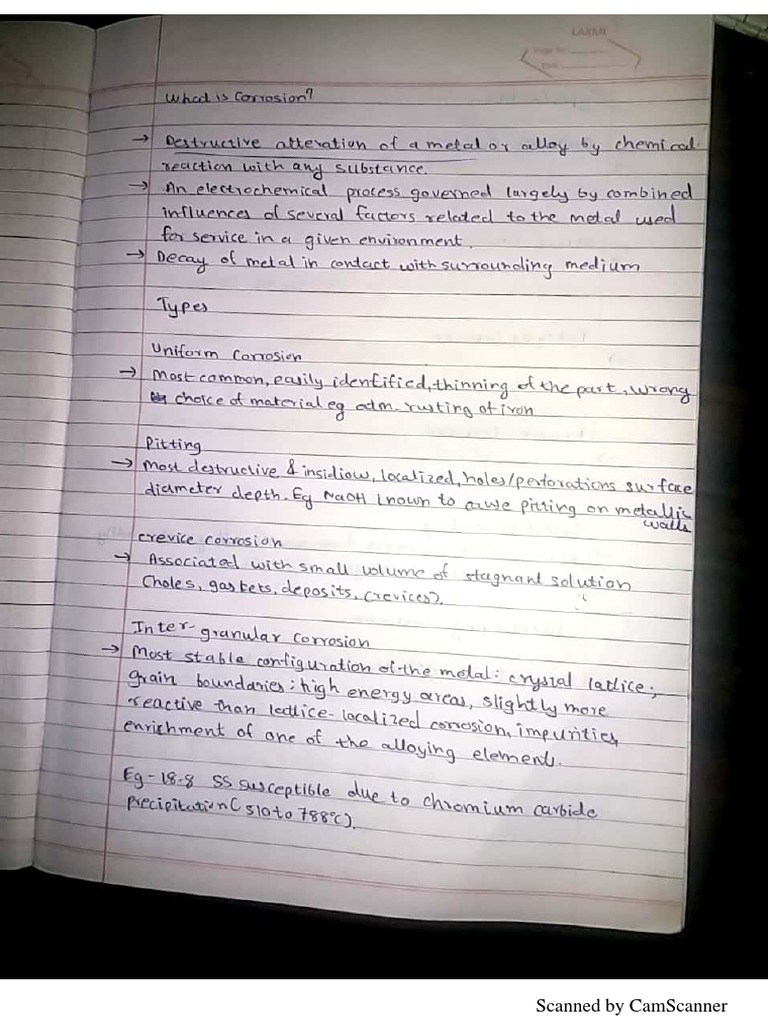 LAXMI
What is Corrosion?
→ Destructive alteration of a metal or alloy by chemical
reaction with any substance.
→ An electrochemical process governed largely by combined
influences of several factors related to the metal used
for service in a given environment.
→ Decay of metal in contact with surrounding medium
Types
Uniform Corrosion
→ Most common, easily identified, thinning of the part, wrong
choice of material eg atm. rusting of iron
Pitting
→ Most destructive & insidious, localized, holes/perforations surface
diameter depth. Eg NaOH known to cause pitting on metallic
walls
crevice corrosion
→ Associated with small volume of stagnant solution
(holes, gaskets, deposits, crevices).
Inter-granular corrosion
→ Most stable configuration of the metal: crystal lattice;
grain boundaries: high energy areas, slightly more
reactive than lattice - localized corrosion, impurities,
enrichment of one of the alloying element.
Eg-18-8 SS susceptible due to chromium carbide
precipitation (510 to 788°C).
Scanned by CamScanner